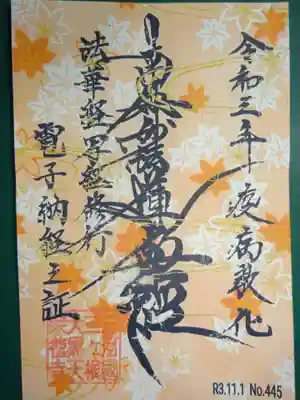 令和三年疫病
南無妙法蓮華經
法華経写経修行
電子納経之証
R3.11.1 No.445